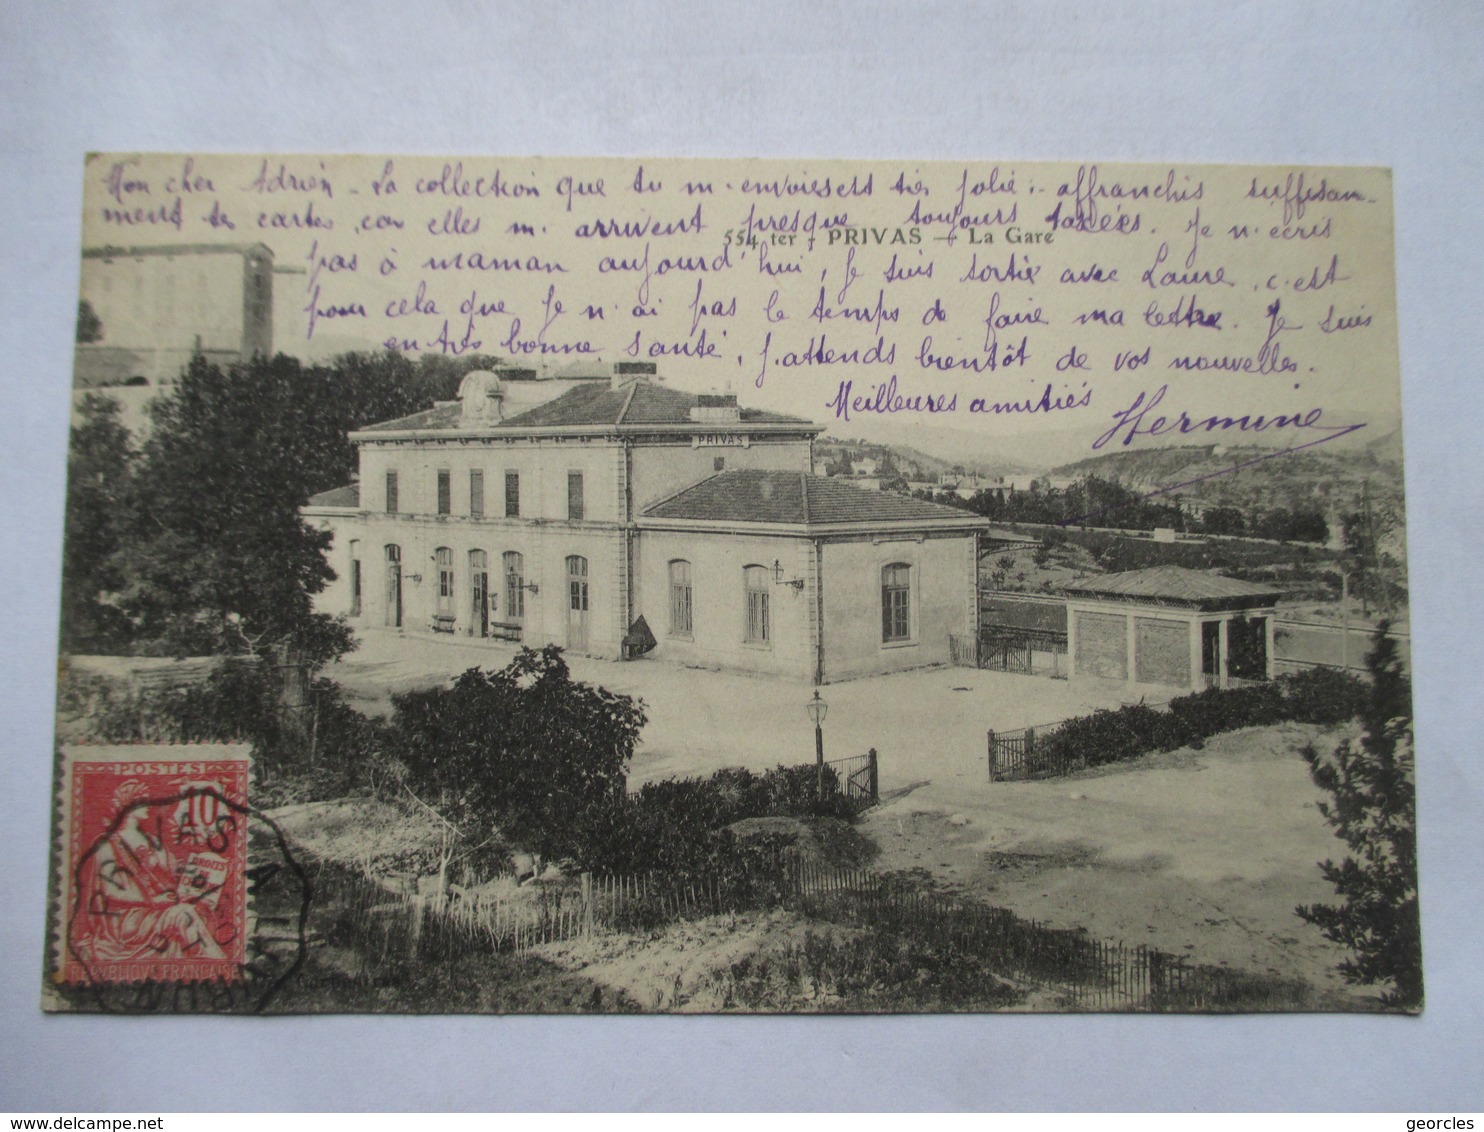 Mon cher Adrien - La collection que tu m'envoies est très jolie : affranchis suffisam-
ment tes cartes, car elles m'arrivent presque toujours taxées. Je n'écris
554 ter - PRIVAS - La Gare
pas à maman aujourd'hui, je suis sortie avec Laure, c'est
pour cela que je n'ai pas le temps de faire ma lettre. Je suis
en très bonne santé, j'attends bientôt de vos nouvelles.
Meilleures amitiés
Hermine
PRIVAS
POSTES
10
DROITS
REPUBLIQUE FRANÇAISE
PRIVAS A
delcampe.net
georcles